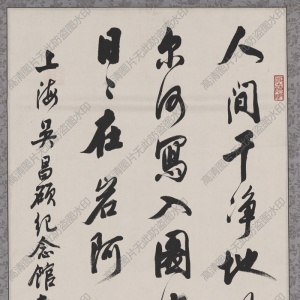 人间干净地
尔何写入图
日〻在岩阿
上海吴昌硕纪念馆